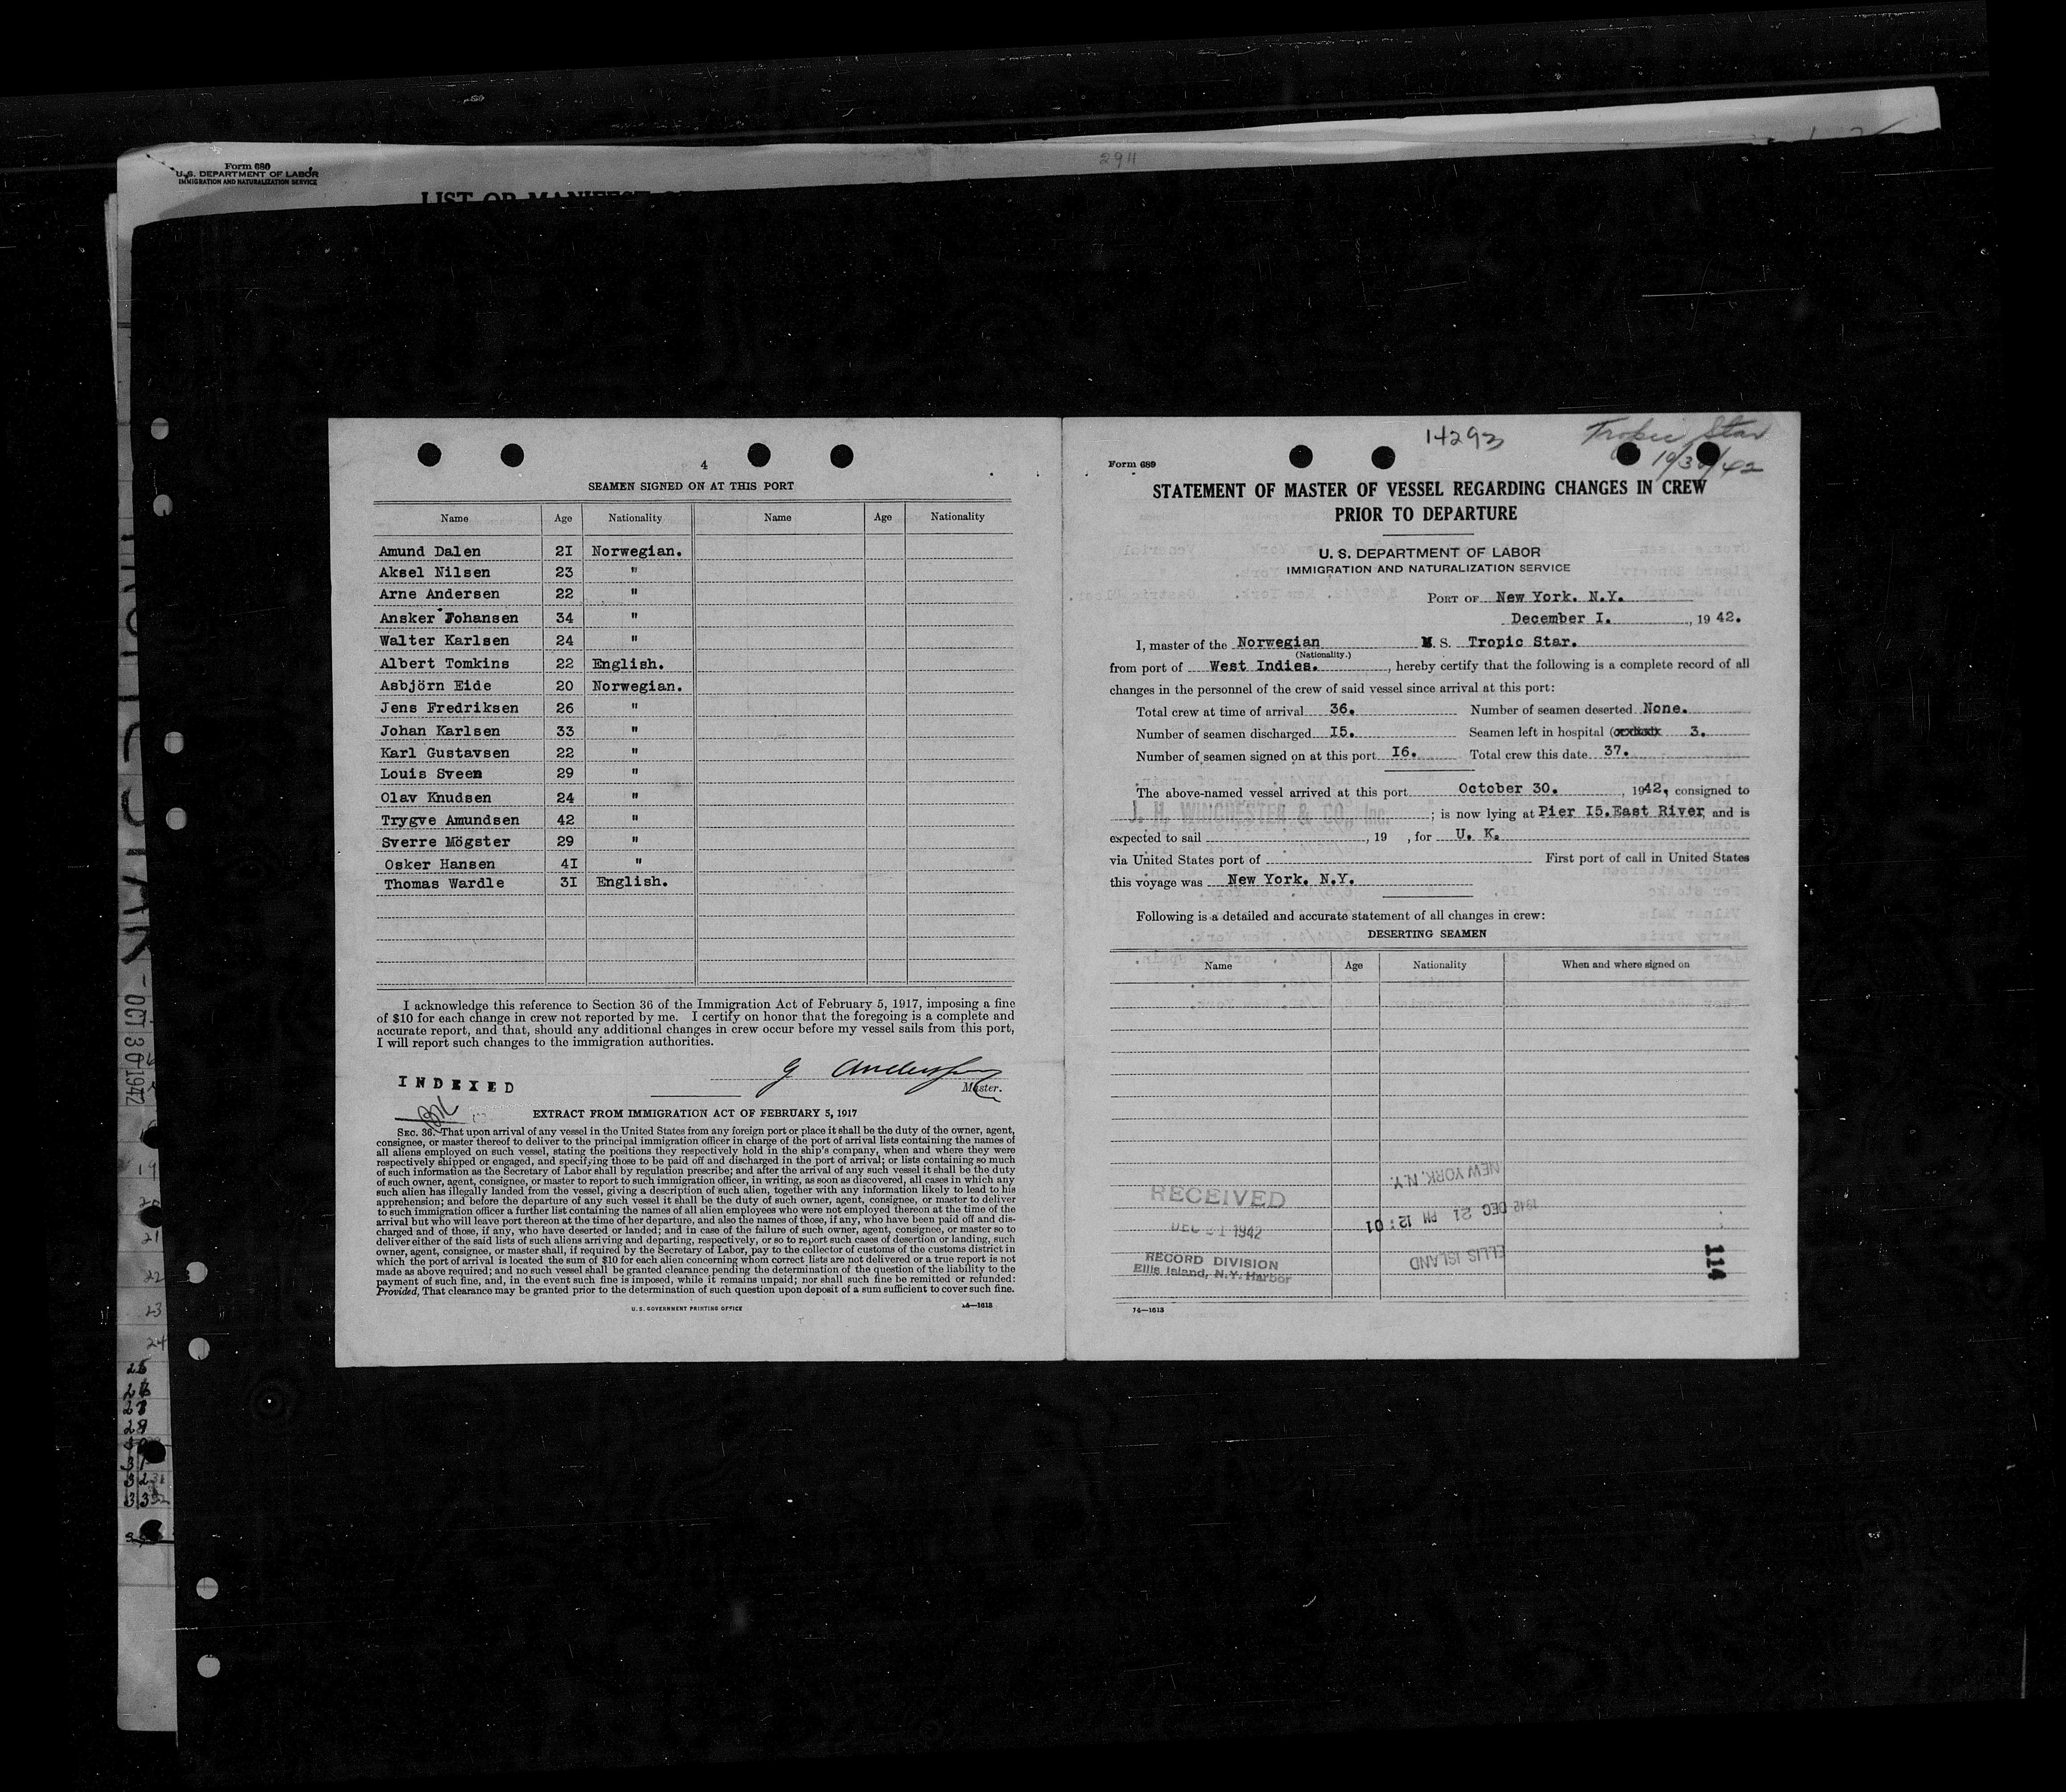 Form 689
U.S. DEPARTMENT OF LABOR
IMMIGRATION AND NATURALIZATION SERVICE
LIST OR MANIFEST OF
2911
OCT 30 1942
19
21
22
23
24
4
SEAMEN SIGNED ON AT THIS PORT
Name Age Nationality Name Age Nationality
Amund Dalen 2I Norwegian.
Aksel Nilsen 23 "
Arne Andersen 22 "
Ansker Johansen 34 "
Walter Karlsen 24 "
Albert Tomkins 22 English.
Asbjörn Eide 20 Norwegian.
Jens Fredriksen 26 "
Johan Karlsen 33 "
Karl Gustavsen 22 "
Louis Sveen 29 "
Olav Knudsen 24 "
Trygve Amundsen 42 "
Sverre Mögster 29 "
Osker Hansen 4I "
Thomas Wardle 3I English.
I acknowledge this reference to Section 36 of the Immigration Act of February 5, 1917, imposing a fine
of $10 for each change in crew not reported by me. I certify on honor that the foregoing is a complete and
accurate report, and that, should any additional changes in crew occur before my vessel sails from this port,
I will report such changes to the immigration authorities.
G Andersen
Master.
INDEXED
EXTRACT FROM IMMIGRATION ACT OF FEBRUARY 5, 1917
SEC. 36. That upon arrival of any vessel in the United States from any foreign port or place it shall be the duty of the owner, agent,
consignee, or master thereof to deliver to the principal immigration officer in charge of the port of arrival lists containing the names of
all aliens employed on such vessel, stating the positions they respectively hold in the ship's company, when and where they were
respectively shipped or engaged, and specifying those to be paid off and discharged in the port of arrival; or lists containing so much
of such information as the Secretary of Labor shall by regulation prescribe; and after the arrival of any such vessel it shall be the duty
of such owner, agent, consignee, or master to report to such immigration officer, in writing, as soon as discovered, all cases in which any
such alien has illegally landed from the vessel, giving a description of such alien, together with any information likely to lead to his
apprehension; and before the departure of any such vessel it shall be the duty of such owner, agent, consignee, or master to deliver
to such immigration officer a further list containing the names of all alien employees who were not employed thereon at the time of the
arrival but who will leave port thereon at the time of her departure, and also the names of those, if any, who have been paid off and dis-
charged and of those, if any, who have deserted or landed; and in case of the failure of such owner, agent, consignee, or master so to
deliver either of the said lists of such aliens arriving and departing, respectively, or so to report such cases of desertion or landing, such
owner, agent, consignee, or master shall, if required by the Secretary of Labor, pay to the collector of customs of the customs district in
which the port of arrival is located the sum of $10 for each alien concerning whom correct lists are not delivered or a true report is not
made as above required; and no such vessel shall be granted clearance pending the determination of the question of the liability to the
payment of such fine, and, in the event such fine is imposed, while it remains unpaid; nor shall such fine be remitted or refunded:
Provided, That clearance may be granted prior to the determination of such question upon deposit of a sum sufficient to cover such fine.
U. S. GOVERNMENT PRINTING OFFICE 14—1613
14293
Tropic Star
10/30/42
Form 689
STATEMENT OF MASTER OF VESSEL REGARDING CHANGES IN CREW
PRIOR TO DEPARTURE
U. S. DEPARTMENT OF LABOR
IMMIGRATION AND NATURALIZATION SERVICE
PORT OF New York. N.Y.
December I. , 19 42.
I, master of the Norwegian M S. Tropic Star.
(Nationality.)
from port of West Indies. , hereby certify that the following is a complete record of all
changes in the personnel of the crew of said vessel since arrival at this port:
Total crew at time of arrival 36. Number of seamen deserted None.
Number of seamen discharged I5. Seamen left in hospital ( 3.
Number of seamen signed on at this port I6. Total crew this date 37.
The above-named vessel arrived at this port October 30. , 1942, consigned to
J. H. WINCHESTER & CO., Inc. ; is now lying at Pier I5.East River, and is
expected to sail , 19 , for U. K.
via United States port of First port of call in United States
this voyage was New York. N.Y.
Following is a detailed and accurate statement of all changes in crew:
DESERTING SEAMEN
Name Age Nationality When and where signed on
NEW YORK, N.Y.
1942 DEC 21 PM 12:01
ELLIS ISLAND
RECEIVED
DEC 21 1942
RECORD DIVISION
Ellis Island, N.Y. Harbor
114
14—1613